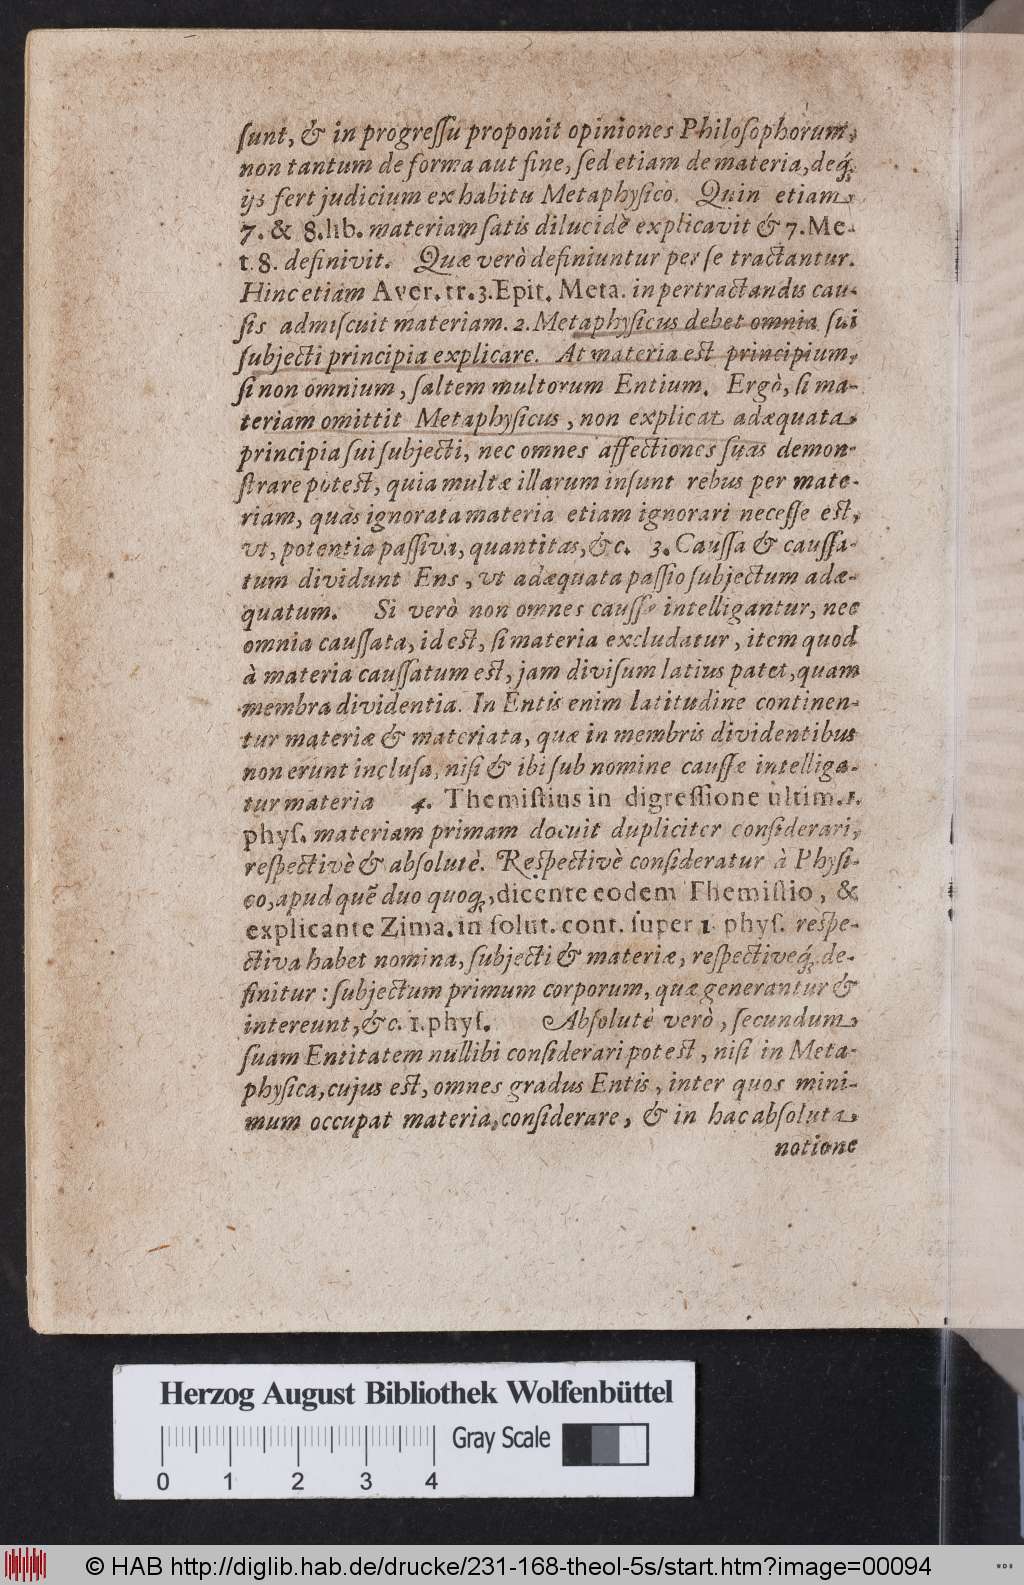 ſunt, & in progreſſu proponit opiniones Philoſophorum,
non tantum de forma aut fine, ſed etiam de materia, deq́;
ijs fert judicium ex habitu Metaphyſico. Quin etiam
7. & 8. lib. materiam ſatis dilucidè explicavit & 7. Me-
t. 8. definivit. Quæ verò definiuntur per ſe tractantur.
Hinc etiam Aver. tr. 3. Epit. Meta. in pertractandis cau-
ſis admiſcuit materiam. 2. Metaphyſicus debet omnia ſui
ſubjecti principia explicare. At materia est principium,
ſi non omnium, ſaltem multorum Entium. Ergò, ſi ma-
teriam omittit Metaphyſicus, non explicat adæquata
principia ſui ſubjecti, nec omnes affectiones ſuas demon-
ſtrare potest, quia multæ illarum inſunt rebus per mate-
riam, quas ignorata materia etiam ignorari neceſſe est,
vt, potentia paſſiva, quantitas, &c. 3. Cauſſa & cauſſa-
tum dividunt Ens, vt adæquata paſſio ſubjectum adæ-
quatum. Si verò non omnes cauſſæ intelligantur, nec
omnia cauſſata, id est, ſi materia excludatur, item quod
à materia cauſſatum est, jam diviſum latius patet, quam
membra dividentia. In Entis enim latitudine continen-
tur materiæ & materiata, quæ in membris dividentibus
non erunt incluſa, niſi & ibi ſub nomine cauſſæ intelliga-
tur materia 4. Themiſtius in digreſſione ultim. 1.
phyſ. materiam primam docuit dupliciter conſiderari,
reſpectivè & abſolutè. Reſpectivè conſideratur à Phyſi-
co, apud quẽ duo quoq;, dicente eodem Themiſtio, &
explicante Zima. in ſolut. cont. ſuper 1. phyſ. reſpe-
ctiva habet nomina, ſubjecti & materiæ, reſpectiveq́; de-
finitur: ſubjectum primum corporum, quæ generantur &
intereunt, &c. 1. phyſ. Abſolutè verò, ſecundum
ſuam Entitatem nullibi conſiderari potest, niſi in Meta-
phyſica, cujus est, omnes gradus Entis, inter quos mini-
mum occupat materia, conſiderare, & in hac abſoluta
notione
Herzog August Bibliothek Wolfenbüttel
Gray Scale
0 1 2 3 4
© HAB http://diglib.hab.de/drucke/231-168-theol-5s/start.htm?image=00094